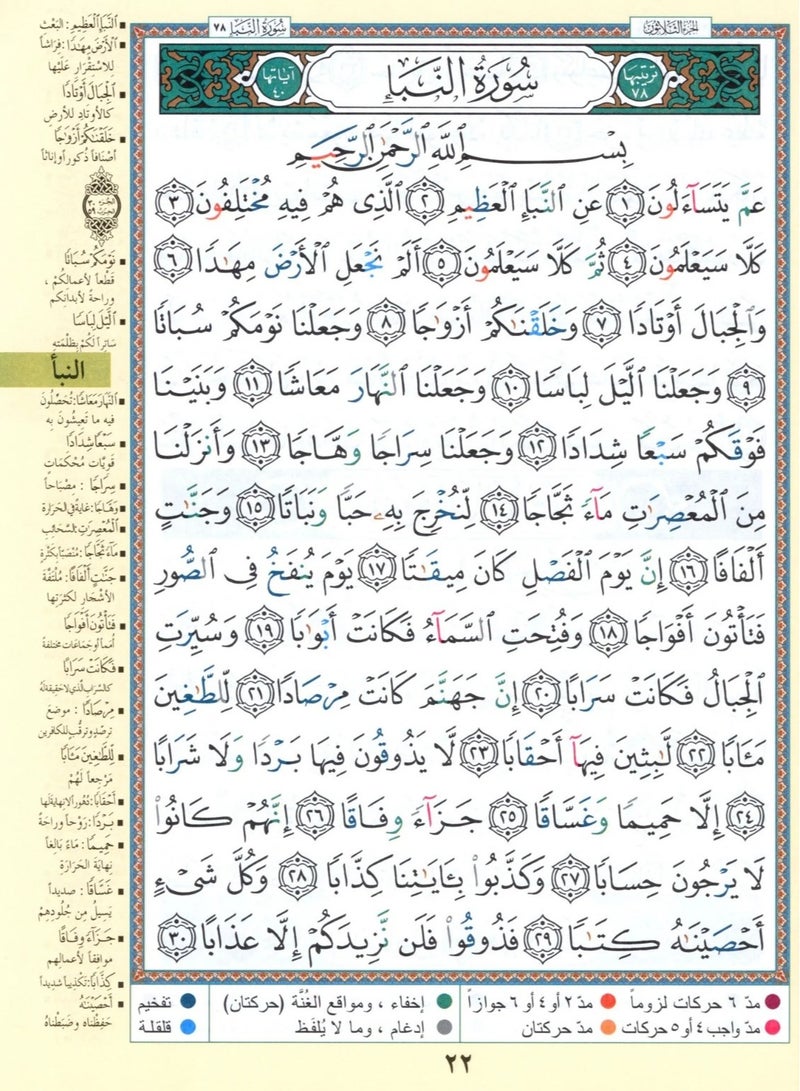 الجزء الثلاثون
سورة النبأ ٧٨
ترتيبها ٧٨
سُورَةُ النَّبَإِ
آياتها ٤٠
بِسْمِ ٱللَّهِ ٱلرَّحْمَٰنِ ٱلرَّحِيمِ
عَمَّ يَتَسَآءَلُونَ ١ عَنِ ٱلنَّبَإِ ٱلْعَظِيمِ ٢ ٱلَّذِى هُمْ فِيهِ مُخْتَلِفُونَ ٣
كَلَّا سَيَعْلَمُونَ ٤ ثُمَّ كَلَّا سَيَعْلَمُونَ ٥ أَلَمْ نَجْعَلِ ٱلْأَرْضَ مِهَٰدًا ٦
وَٱلْجِبَالَ أَوْتَادًا ٧ وَخَلَقْنَٰكُمْ أَزْوَٰجًا ٨ وَجَعَلْنَا نَوْمَكُمْ سُبَاتًا
٩ وَجَعَلْنَا ٱلَّيْلَ لِبَاسًا ١٠ وَجَعَلْنَا ٱلنَّهَارَ مَعَاشًا ١١ وَبَنَيْنَا
فَوْقَكُمْ سَبْعًا شِدَادًا ١٢ وَجَعَلْنَا سِرَاجًا وَهَّاجًا ١٣ وَأَنزَلْنَا
مِنَ ٱلْمُعْصِرَٰتِ مَآءً ثَجَّاجًا ١٤ لِّنُخْرِجَ بِهِۦ حَبًّا وَنَبَاتًا ١٥ وَجَنَّٰتٍ
أَلْفَافًا ١٦ إِنَّ يَوْمَ ٱلْفَصْلِ كَانَ مِيقَٰتًا ١٧ يَوْمَ يُنفَخُ فِى ٱلصُّورِ
فَتَأْتُونَ أَفْوَاجًا ١٨ وَفُتِحَتِ ٱلسَّمَآءُ فَكَانَتْ أَبْوَٰبًا ١٩ وَسُيِّرَتِ
ٱلْجِبَالُ فَكَانَتْ سَرَابًا ٢٠ إِنَّ جَهَنَّمَ كَانَتْ مِرْصَادًا ٢١ لِّلطَّٰغِينَ
مَـَٔابًا ٢٢ لَّٰبِثِينَ فِيهَآ أَحْقَابًا ٢٣ لَّا يَذُوقُونَ فِيهَا بَرْدًا وَلَا شَرَابًا
٢٤ إِلَّا حَمِيمًا وَغَسَّاقًا ٢٥ جَزَآءً وِفَاقًا ٢٦ إِنَّهُمْ كَانُوا۟
لَا يَرْجُونَ حِسَابًا ٢٧ وَكَذَّبُوا۟ بِـَٔايَٰتِنَا كِذَّابًا ٢٨ وَكُلَّ شَىْءٍ
أَحْصَيْنَٰهُ كِتَٰبًا ٢٩ فَذُوقُوا۟ فَلَن نَّزِيدَكُمْ إِلَّا عَذَابًا ٣٠
النَّبَإِ الْعَظِيمِ : البَعْث
الأَرْضَ مِهَادًا : فِرَاشاً
للاسْتِقْرَارِ عَلَيْها
الْجِبَالَ أَوْتَادًا
كالأوتادِ للأرضِ
خَلَقْنَاكُمْ أَزْوَاجًا
أصنافاً ذُكوراً وإناثاً
الجزء ٣٠
الحزب ٥٩
نَوْمَكُمْ سُبَاتًا
قَطْعاً لأعمالِكُمْ ،
وراحةً لأبدانِكم
اللَّيْلَ لِبَاسًا
سَاتِراً لَكُمْ بِظُلْمَتِهِ
النبأ
النَّهَارَ مَعَاشًا : تُحَصِّلُونَ
فيه ما تَعِيشُونَ بِه
سَبْعًا شِدَادًا
قَوِيَّاتٍ مُحْكَمَاتٍ
سِرَاجًا : مصباحاً
وَهَّاجًا : غايةً في الحَرارة
الْمُعْصِرَاتِ : السَّحَائِبِ
مَاءً ثَجَّاجًا : مُنْصَبّاً بِكَثْرَة
جَنَّاتٍ أَلْفَافًا : مُلْتَفَّةَ
الأَشْجارِ لكَثْرَتِها
فَتَأْتُونَ أَفْوَاجًا
أُمَماً أو جَمَاعَات مختلفة
فَكَانَتْ سَرَابًا
كالسَّرابِ الَّذِي لا حَقِيقَةَ لَهُ
مِرْصَادًا : موضعَ
تَرَصُّدٍ وتَرَقُّبٍ للكافِرين
لِلطَّاغِينَ مَآبًا
مَرْجِعاً لَهُمْ
أَحْقَابًا : دُهُوراً لا نِهَايَةَ لَها
بَرْدًا : رَوْحاً وراحةً
حَمِيمًا : مَاءً بَالِغاً
نِهايَةَ الحَرَارَةِ
غَسَّاقًا : صديداً
يَسِيلُ مِن جُلُودِهِمْ
جَزَاءً وِفَاقًا
موافقاً لأعمالِهم
كِذَّابًا : تَكْذِيباً شَدِيداً
أَحْصَيْنَاهُ
حَفِظْنَاهُ وضَبَطْنَاهُ
مدّ ٦ حركات لزوماً
مدّ ٢ أو ٤ أو ٦ جوازاً
إخفاء ، ومواقع الغُنَّة (حركتان)
تفخيم
مدّ واجب ٤ أو ٥ حركات
مدّ حركتان
إدغام ، وما لا يُلفَظ
قلقلة
٢٢